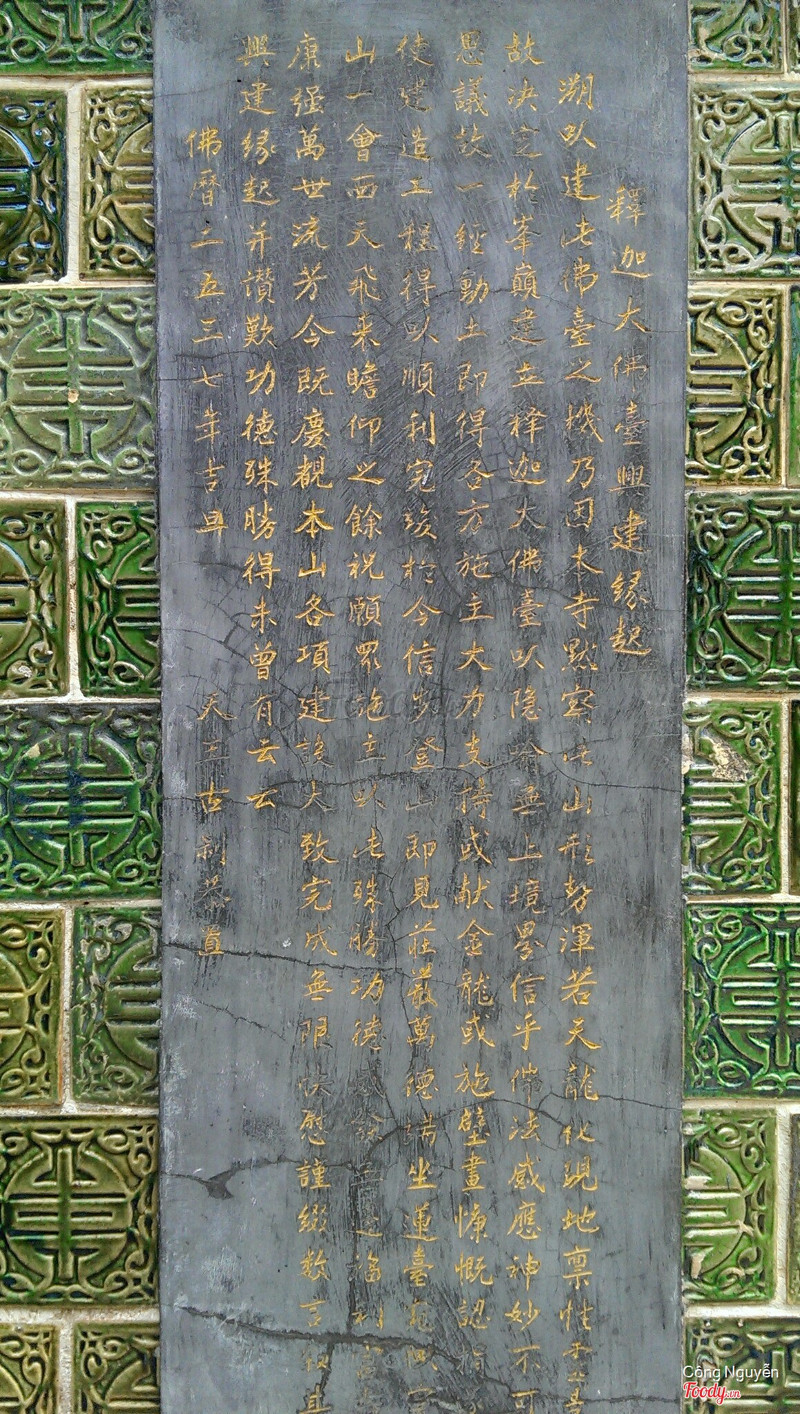 釋迦大佛臺興建緣起
溯以建此佛臺之機乃因本寺默察此山形勢渾若天龍化現地禀性
故决定於峯巔建立释迦大佛臺以隐 無上境界信乎佛法感應神妙不可
思議故一經動土即得各方施主大力支持或献金龍或施壁畫慷慨認
使建造工程得以順利完竣於今信步登山即見莊嚴萬德端坐蓮臺
山一會西天飛来瞻仰之餘祝願眾施主以此殊勝功德 福利
康强萬世流芳今既慶觀本山各項建設大致完成無限快慰謹綴数言
興建緣起并讃歎功德殊勝得未曾有云云
佛曆二五三七年吉旦
天王古刹恭置
Công Nguyễn
Foody.vn